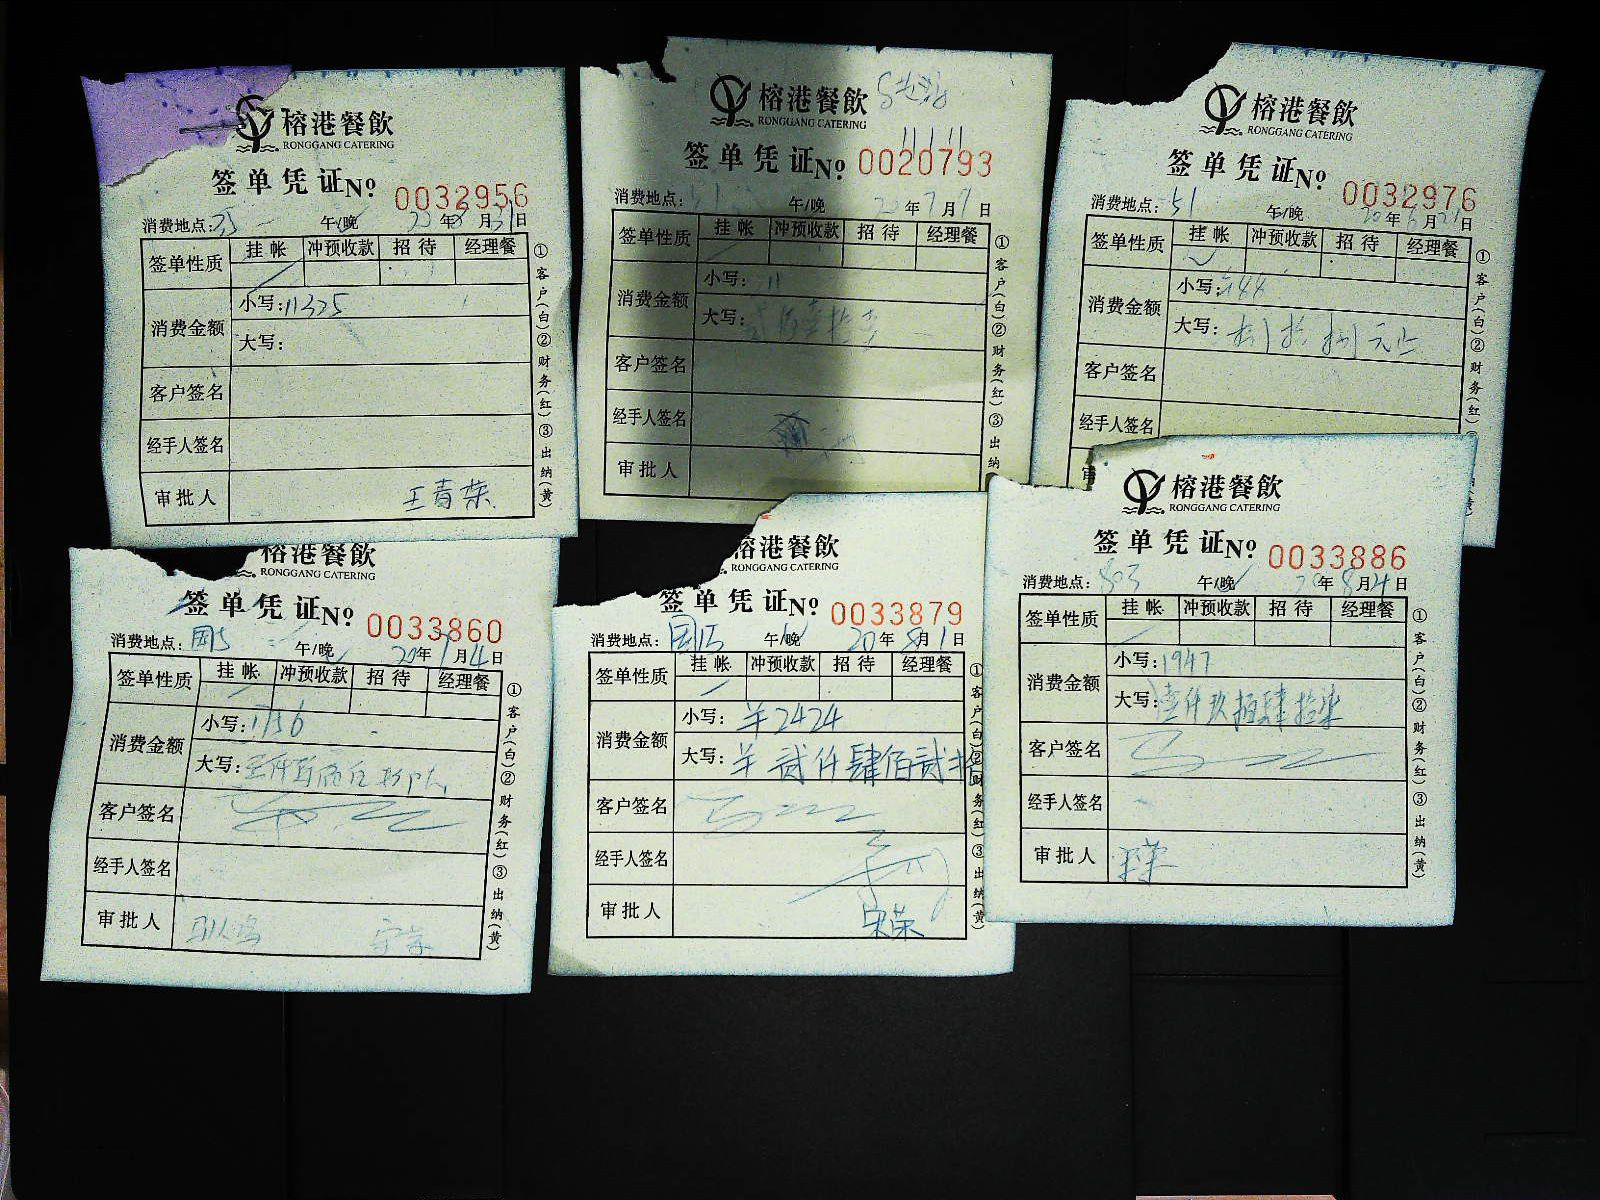 榕港餐飲
RONGGANG CATERING
签单凭证№ 0032956
消费地点: 午/晚 年 月31日
签单性质 挂帐 冲预收款 招待 经理餐
消费金额 小写:
大写:
客户签名
经手人签名
审批人 王青荣
①客户(白)②财务(红)③出纳(黄)
榕港餐飲
RONGGANG CATERING
签单凭证№ 0020793
消费地点: 51 午/晚 20年7月1日
签单性质 挂帐 冲预收款 招待 经理餐
消费金额 小写:
大写:
客户签名
经手人签名
审批人
①客户(白)②财务(红)③出纳(黄)
榕港餐飲
RONGGANG CATERING
签单凭证№ 0032976
消费地点: 51 午/晚 20年6月21日
签单性质 挂帐 冲预收款 招待 经理餐
消费金额 小写:
大写: 元
客户签名
经手人签名
①客户(白)②财务(红)
榕港餐飲
RONGGANG CATERING
签单凭证№ 0033860
消费地点: 午/晚 20年7月4日
签单性质 挂帐 冲预收款 招待 经理餐
消费金额 小写: 1756
大写:
客户签名
经手人签名
审批人
①客户(白)②财务(红)③出纳(黄)
榕港餐飲
RONGGANG CATERING
签单凭证№ 0033879
消费地点: 午/晚 20年8月1日
签单性质 挂帐 冲预收款 招待 经理餐
消费金额 小写: 羊2424
大写: 羊 贰仟肆佰贰拾
客户签名
经手人签名
审批人 宋荣
①客户(白)②财务(红)③出纳(黄)
榕港餐飲
RONGGANG CATERING
签单凭证№ 0033886
消费地点: 503 午/晚 20年8月4日
签单性质 挂帐 冲预收款 招待 经理餐
消费金额 小写: 1947
大写: 壹仟玖佰肆拾柒
客户签名
经手人签名
审批人
①客户(白)②财务(红)③出纳(黄)